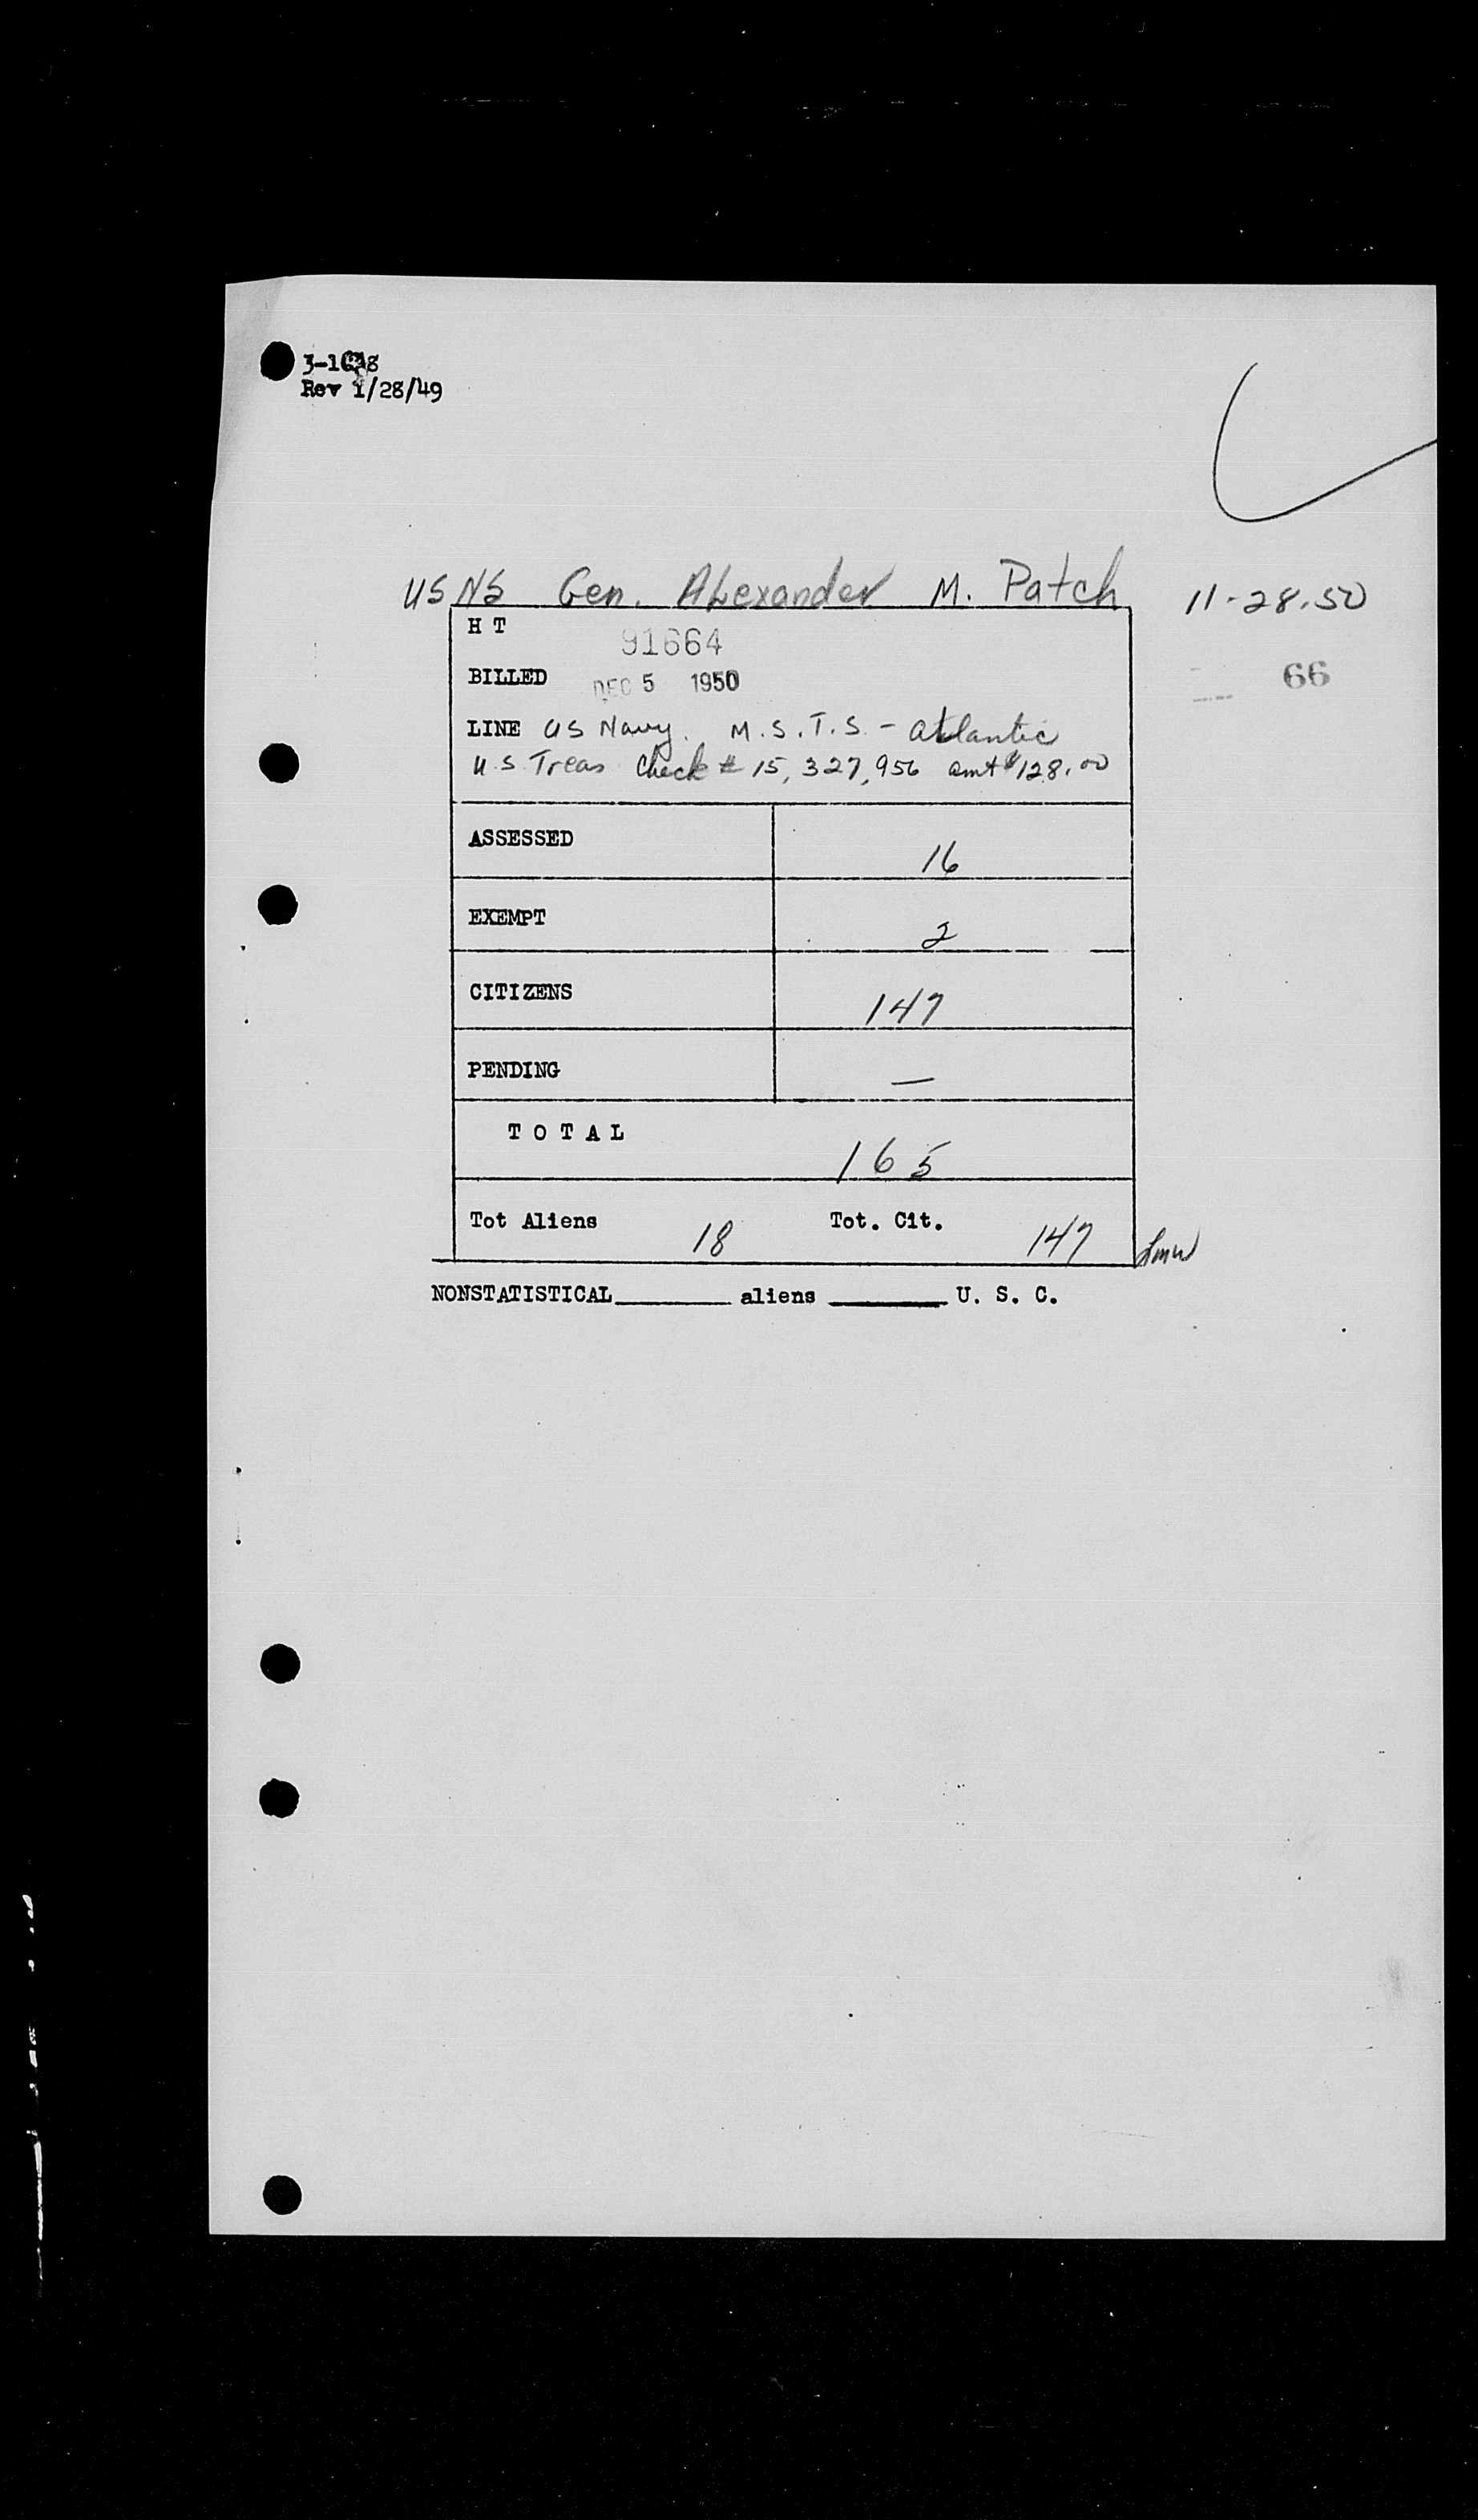 Rev 1/28/49
USNS Gen. Alexander M. Patch 11-28-50
H T 91664
66
BILLED DEC 5 1950
LINE US Navy. M.S.T.S. - Atlantic
U.S Treas Check # 15,327,956 amt $128.00
ASSESSED 16
EXEMPT 2
CITIZENS 147
PENDING —
T O T A L 165
Tot Aliens 18 Tot. Cit. 147
NONSTATISTICAL________ aliens ________ U. S. C.